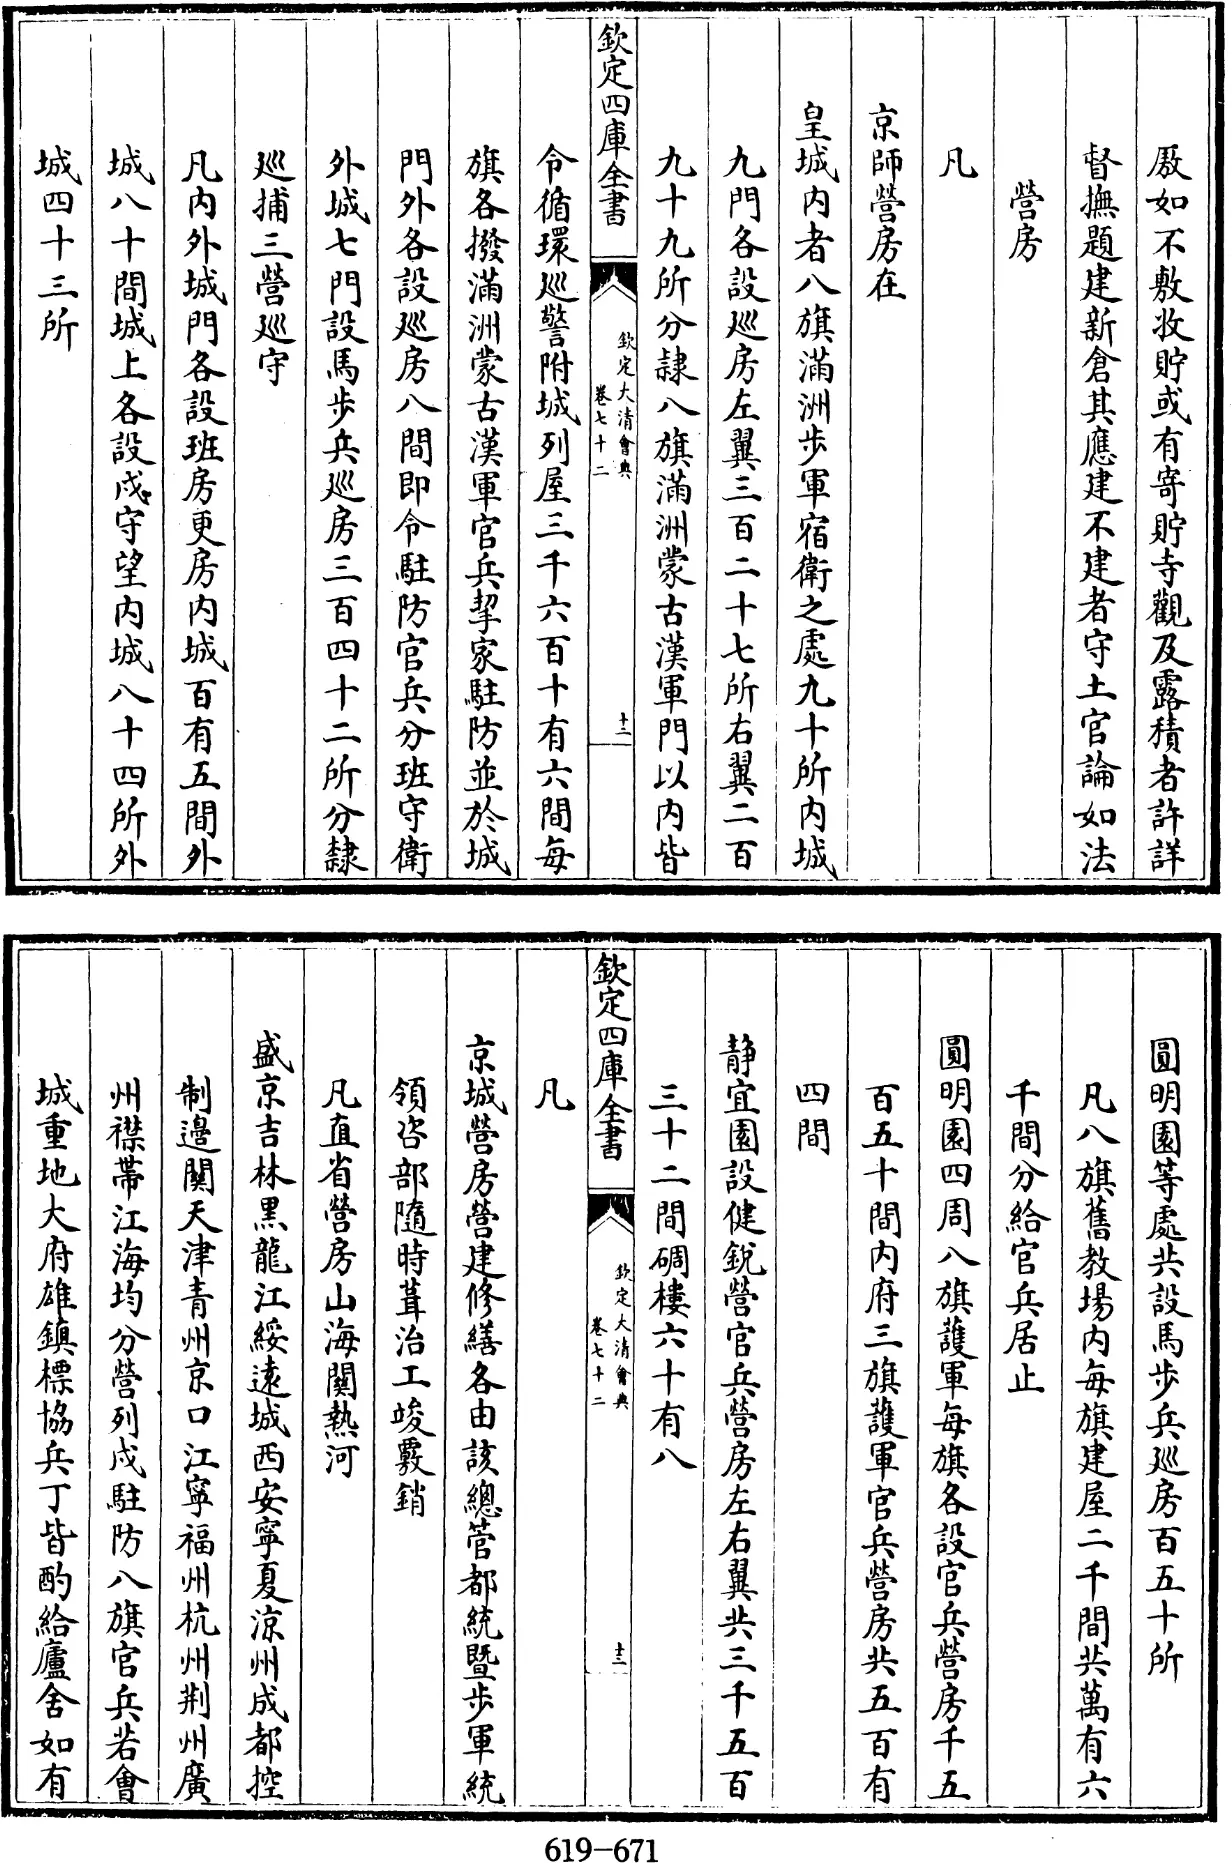 厫如不敷收貯或有寄貯寺觀及露積者許詳
督撫題建新倉其應建不建者守土官論如法
營房
凡
京師營房在
皇城内者八旗滿洲步軍宿衛之處九十所内城
九門各設巡房左翼三百二十七所右翼二百
九十九所分隸八旗滿洲蒙古漢軍門以内皆
欽定四庫全書
欽定大清會典
卷七十二
十二
令循環巡警附城列屋三千六百十有六間每
旗各撥滿洲蒙古漢軍官兵挈家駐防並於城
門外各設巡房八間即令駐防官兵分班守衛
外城七門設馬步兵巡房三百四十二所分隸
巡捕三營巡守
凡内外城門各設班房更房内城百有五間外
城八十間城上各設戍守望内城八十四所外
城四十三所
圓明園等處共設馬步兵巡房百五十所
凡八旗舊教場内每旗建屋二千間共萬有六
千間分給官兵居止
圓明園四周八旗護軍每旗各設官兵營房千五
百五十間内府三旗護軍官兵營房共五百有
四間
靜宜園設健銳營官兵營房左右翼共三千五百
三十二間碉樓六十有八
欽定四庫全書
欽定大清會典
卷七十二
十三
凡
京城營房營建修繕各由該總管都統暨步軍統
領咨部隨時葺治工竣覈銷
凡直省營房山海關熱河
盛京吉林黑龍江綏遠城西安寧夏涼州成都控
制邊關天津青州京口江寧福州杭州荆州廣
州襟帶江海均分營列戍駐防八旗官兵若會
城重地大府雄鎮標協兵丁皆酌給廬舍如有
619-671